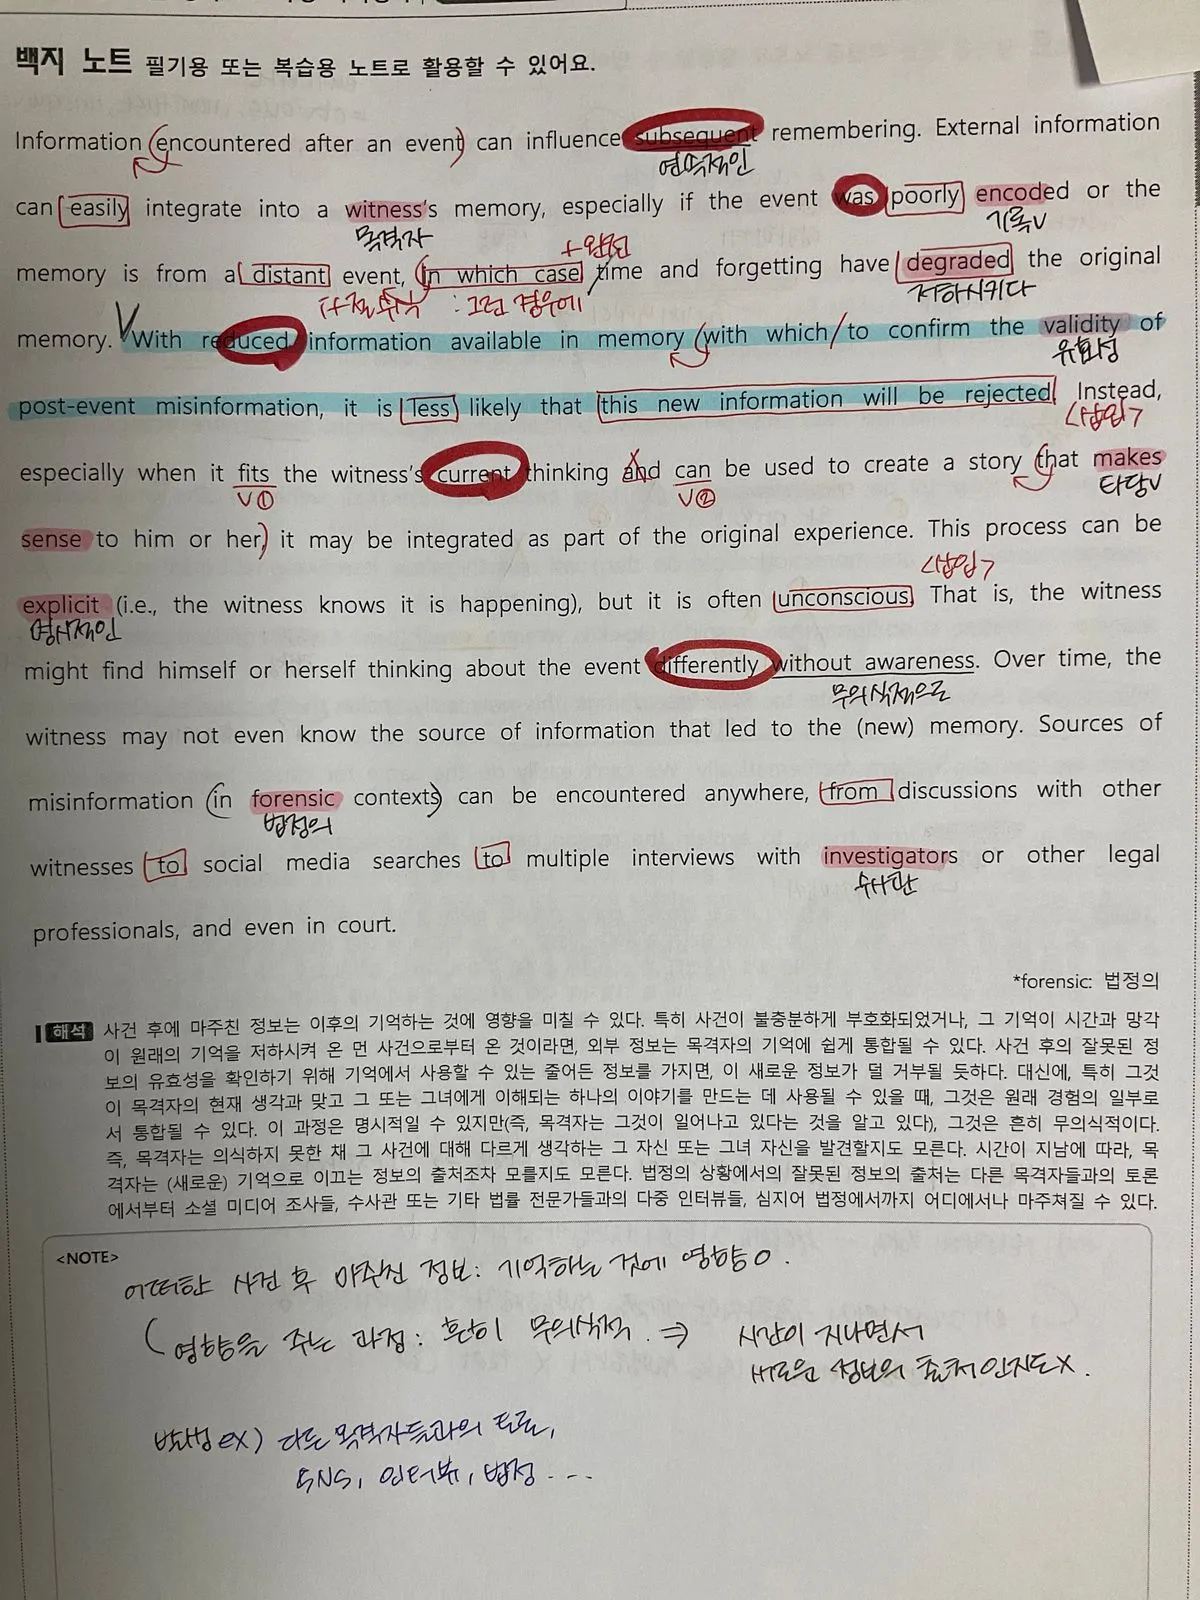 백지 노트 필기용 또는 복습용 노트로 활용할 수 있어요.
Information (encountered after an event) can influence subsequent remembering. External information
can easily integrate into a witness's memory, especially if the event was poorly encoded or the
목격자 기록V
+완전
memory is from a distant event, (in which case / time and forgetting have degraded the original
: 그런 경우에 저하시키다
memory. V With reduced information available in memory (with which / to confirm the validity of
유효성
post-event misinformation, it is less likely that this new information will be rejected. Instead,
<삽입>
especially when it fits the witness's current thinking and can be used to create a story (that makes
V① V② 타당V
sense to him or her,) it may be integrated as part of the original experience. This process can be
<삽입>
explicit (i.e., the witness knows it is happening), but it is often unconscious. That is, the witness
명시적인
might find himself or herself thinking about the event differently without awareness. Over time, the
무의식적으로
witness may not even know the source of information that led to the (new) memory. Sources of
misinformation (in forensic contexts) can be encountered anywhere, from discussions with other
법정의
witnesses to social media searches to multiple interviews with investigators or other legal
수사관
professionals, and even in court.
*forensic: 법정의
해석 사건 후에 마주친 정보는 이후의 기억하는 것에 영향을 미칠 수 있다. 특히 사건이 불충분하게 부호화되었거나, 그 기억이 시간과 망각
이 원래의 기억을 저하시켜 온 먼 사건으로부터 온 것이라면, 외부 정보는 목격자의 기억에 쉽게 통합될 수 있다. 사건 후의 잘못된 정
보의 유효성을 확인하기 위해 기억에서 사용할 수 있는 줄어든 정보를 가지면, 이 새로운 정보가 덜 거부될 듯하다. 대신에, 특히 그것
이 목격자의 현재 생각과 맞고 그 또는 그녀에게 이해되는 하나의 이야기를 만드는 데 사용될 수 있을 때, 그것은 원래 경험의 일부로
서 통합될 수 있다. 이 과정은 명시적일 수 있지만(즉, 목격자는 그것이 일어나고 있다는 것을 알고 있다), 그것은 흔히 무의식적이다.
즉, 목격자는 의식하지 못한 채 그 사건에 대해 다르게 생각하는 그 자신 또는 그녀 자신을 발견할지도 모른다. 시간이 지남에 따라, 목
격자는 (새로운) 기억으로 이끄는 정보의 출처조차 모를지도 모른다. 법정의 상황에서의 잘못된 정보의 출처는 다른 목격자들과의 토론
에서부터 소셜 미디어 조사들, 수사관 또는 기타 법률 전문가들과의 다중 인터뷰들, 심지어 법정에서까지 어디에서나 마주쳐질 수 있다.
<NOTE>
어떠한 사건 후 마주친 정보: 기억하는 것에 영향 O.
(영향을 주는 과정: 흔히 무의식적. ⇒ 시간이 지나면서
새로운 정보의 출처 인지도 X.
ex) 다른 목격자들과의 토론,
SNS, 인터뷰, 법정 ...